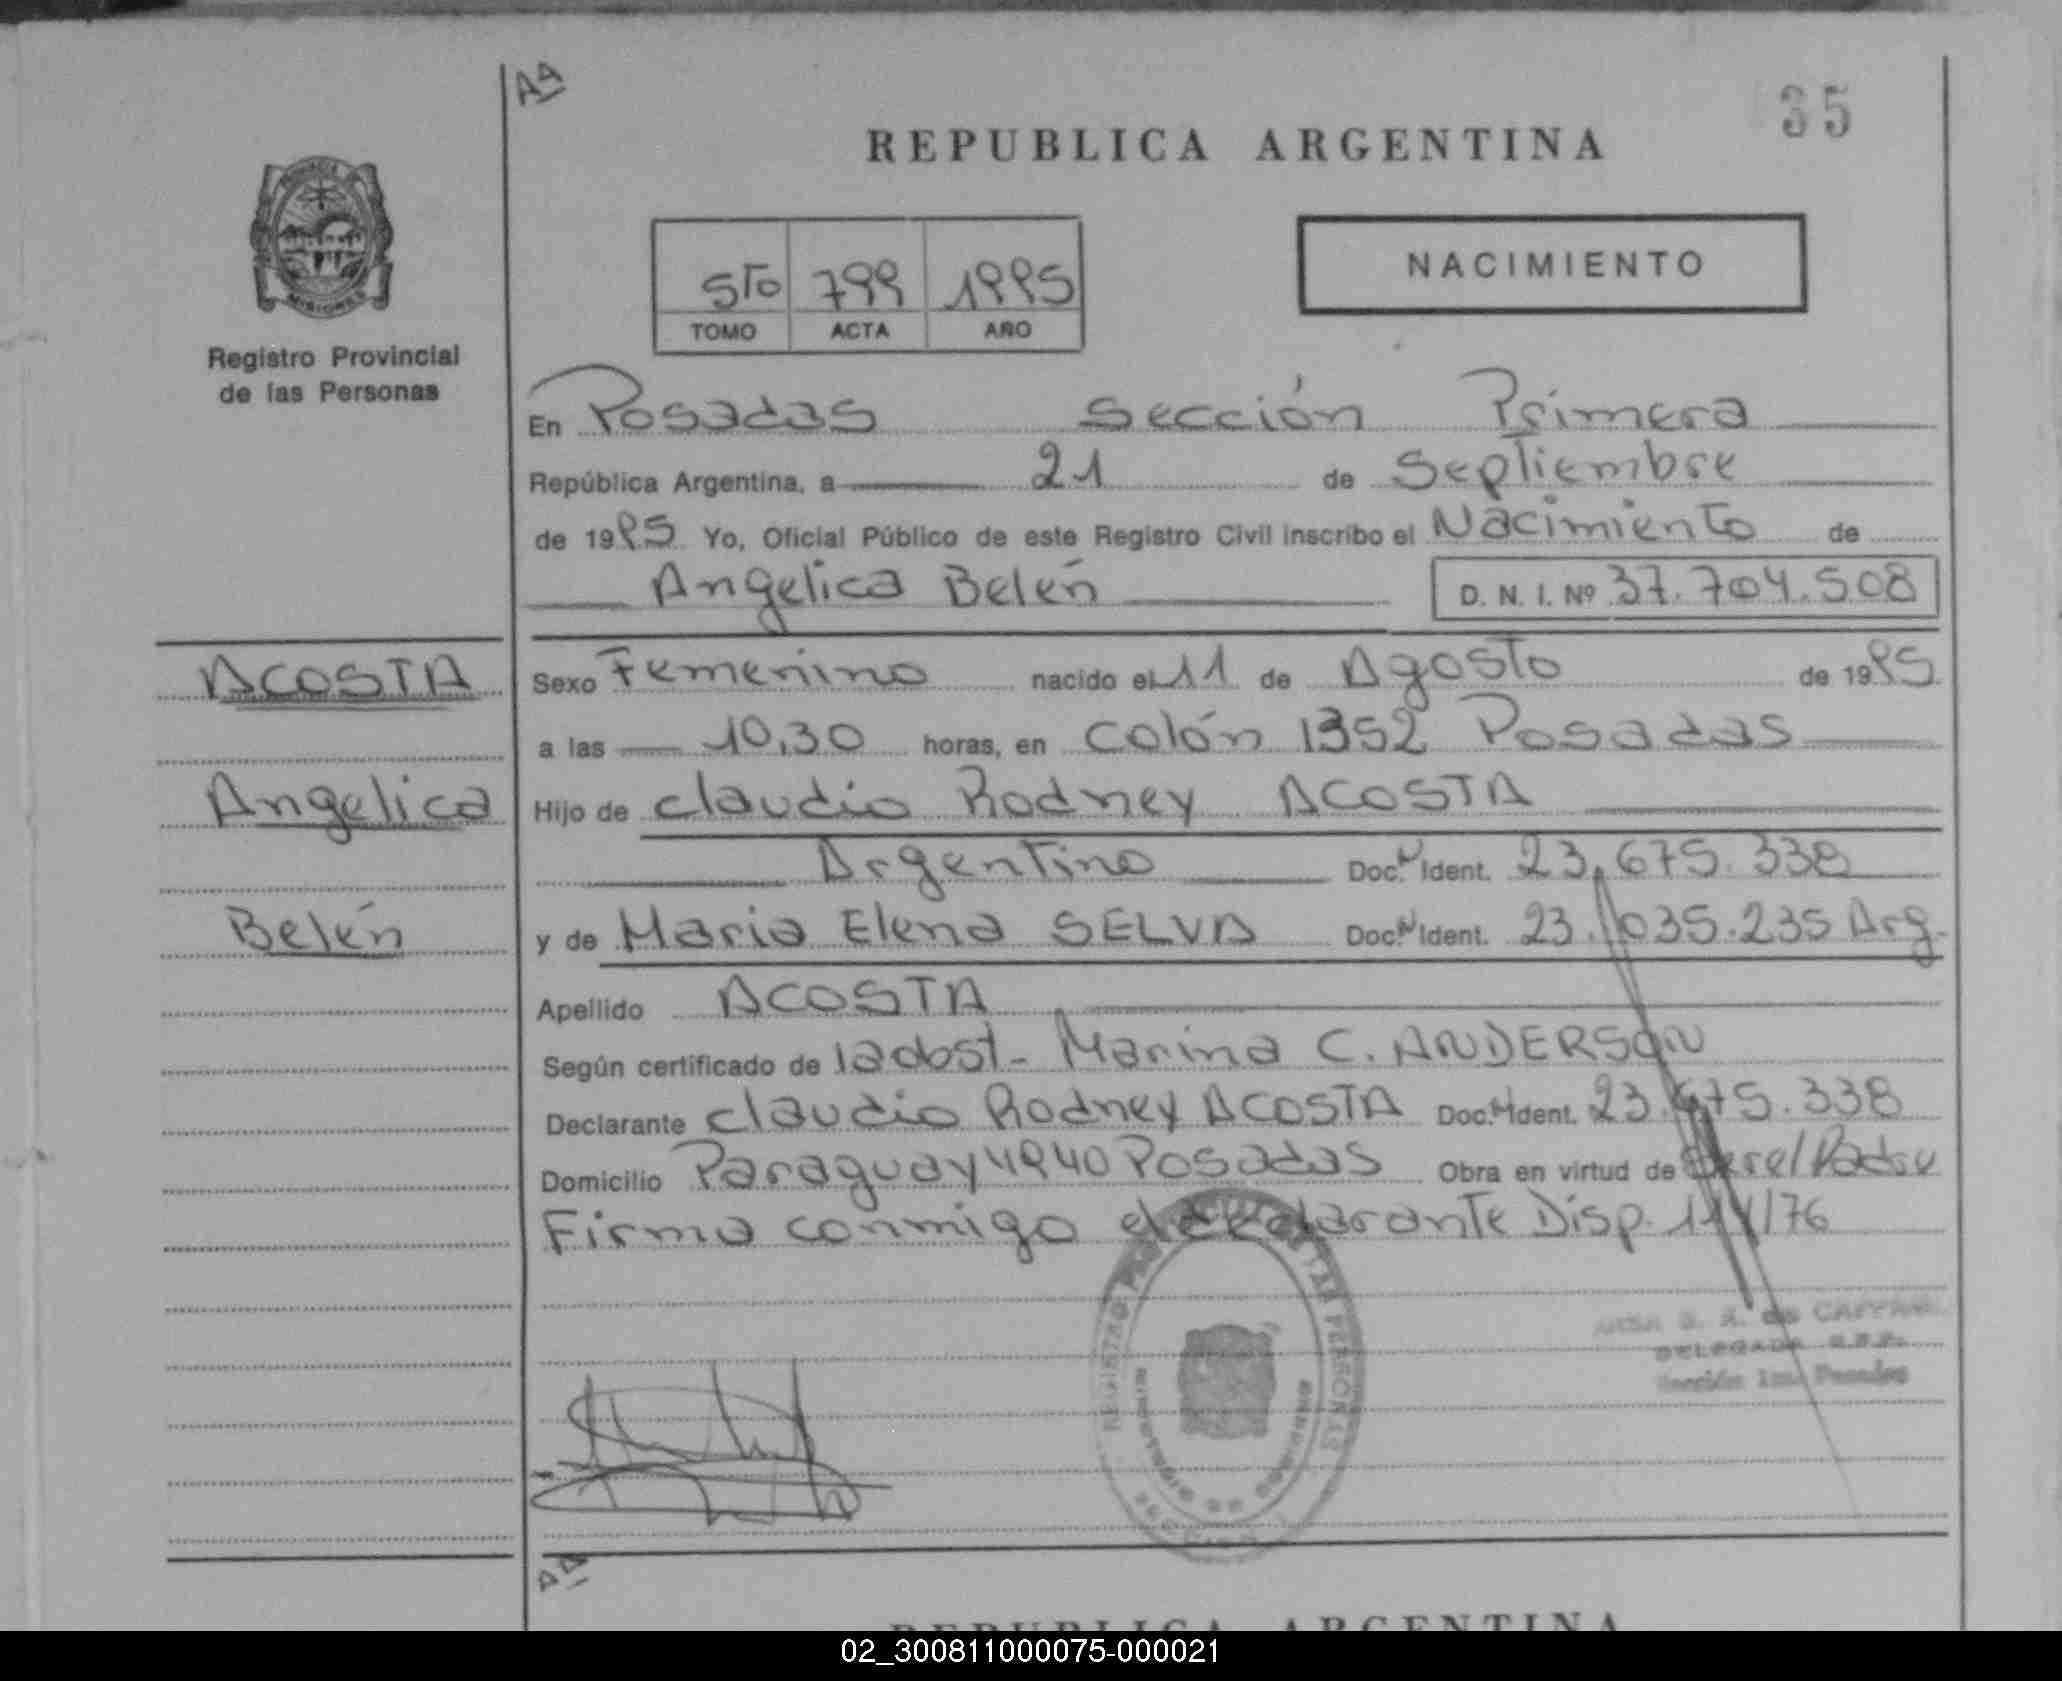 AA
35
REPUBLICA ARGENTINA
PROVINCIA DE
MISIONES
Registro Provincial
de las Personas
5to 799 1995
TOMO ACTA AÑO
NACIMIENTO
En Posadas Sección Primera
República Argentina, a 21 de Septiembre
de 1995 Yo, Oficial Público de este Registro Civil inscribo el Nacimiento de
Angelica Belén D. N. I. Nº 37.704.508
ACOSTA
Angelica
Belén
Sexo Femenino nacido el 11 de Agosto de 1995
a las 10,30 horas, en Colón 1352 Posadas
Hijo de Claudio Rodney ACOSTA
Argentino Doc. N Ident. 23.675.338
y de Maria Elena SELVA Doc. N Ident. 23.035.235 Arg.
Apellido ACOSTA
Según certificado de la obst. Marina C. ANDERSON
Declarante Claudio Rodney ACOSTA Doc. N Ident. 23.675.338
Domicilio Paraguay 4940 Posadas Obra en virtud de Ser el Padre
Firma conmigo el declarante Disp. 114/76
REGISTRO PROVINCIAL DE LAS PERSONAS
MINISTERIO DE GOBIERNO
DELEGADA R.P.P.
Sección 1ra. Posadas
AA
REPUBLICA ARGENTINA
02_300811000075-000021